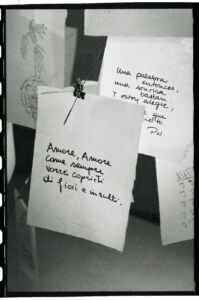 Una palabra
entonces,
una sonrisa
bastan.
Y estoy alegre,
que
P.N.
Amore, Amore
come sempre
vorrei coprirti
di fiori e insulti.